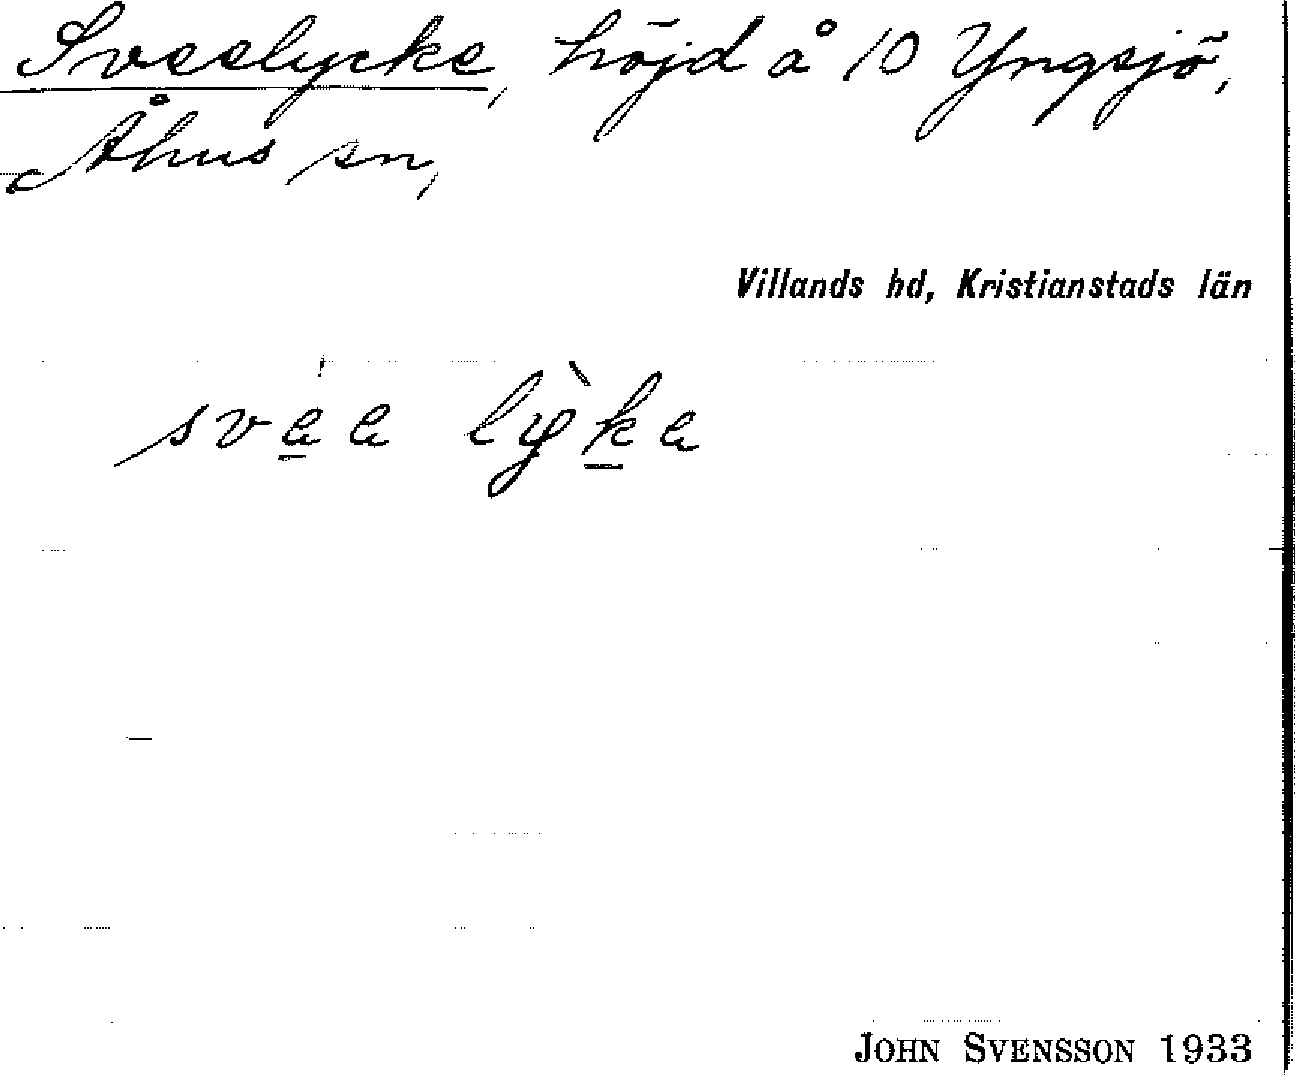 Sveelycke, höjd å 10 Yngsjö,
Åhus sn,
Villands hd, Kristianstads län
JOHN SVENSSON 1933